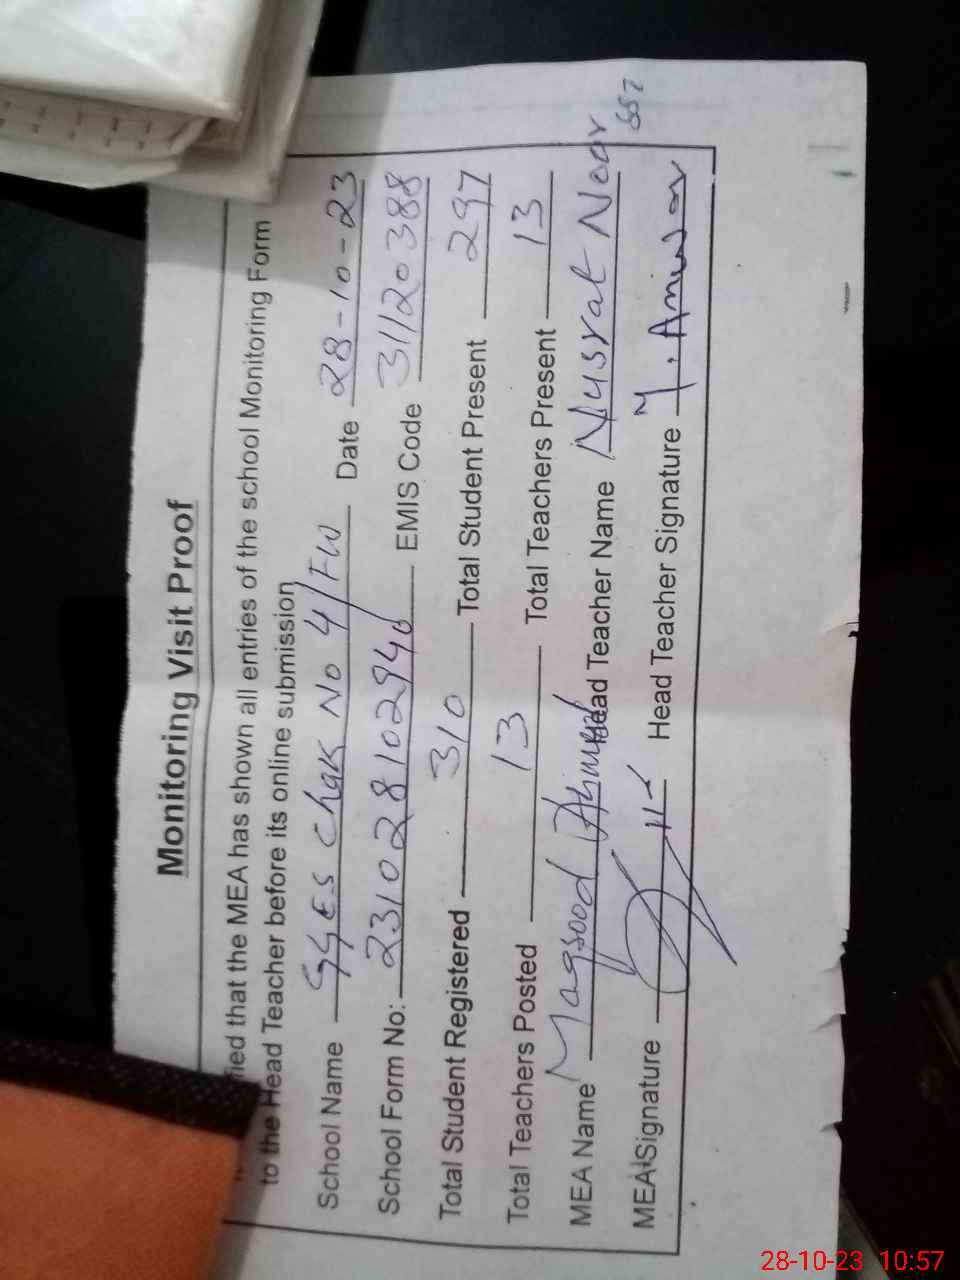 Monitoring Visit Proof
fied that the MEA has shown all entries of the school Monitoring Form
to the Head Teacher before its online submission
School Name GGES Chak No 4/FW Date 28-10-23
School Form No: 23102810294 EMIS Code 31120388
Total Student Registered 310 Total Student Present 297
Total Teachers Posted 13 Total Teachers Present 13
MEA Name Maqsood Ahmed Head Teacher Name Nusrat Noor
SST
MEA Signature Head Teacher Signature Y. Anwar
28-10-23 10:57